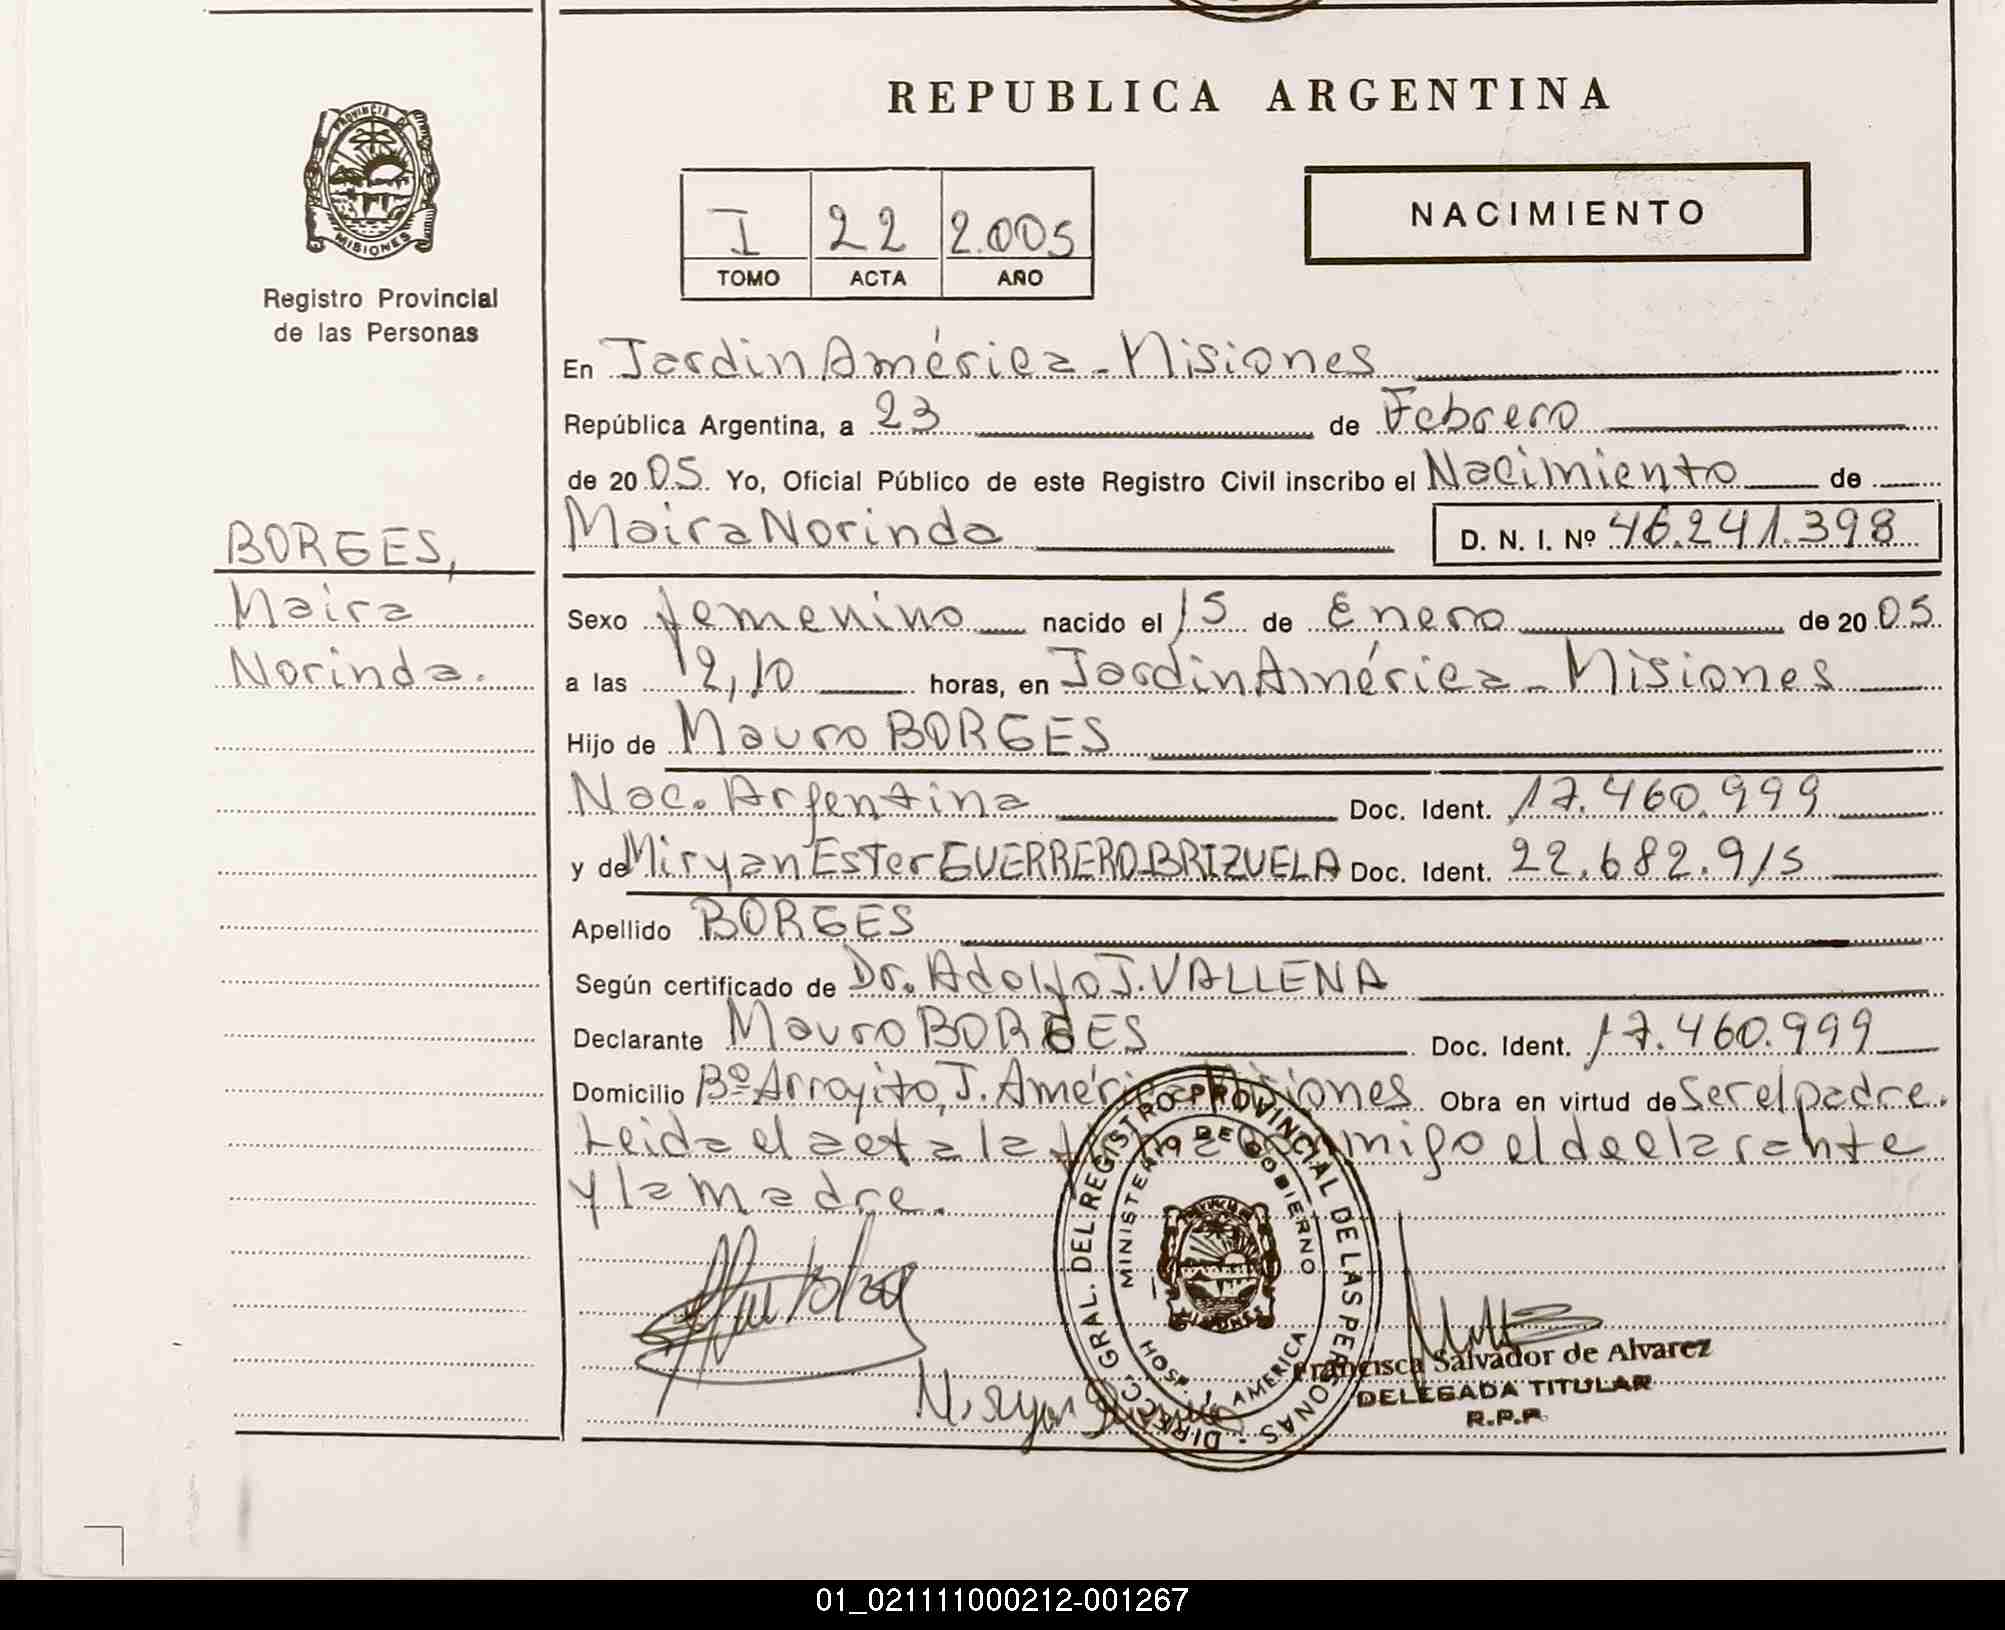 REPUBLICA ARGENTINA
PROVINCIA DE MISIONES
Registro Provincial
de las Personas
I 22 2.005
TOMO ACTA AÑO
NACIMIENTO
En Jardin América - Misiones
República Argentina, a 23 de Febrero
de 20 05. Yo, Oficial Público de este Registro Civil inscribo el Nacimiento de
Maira Norinda D. N. I. Nº 46.241.398
BORGES,
Maira
Norinda.
Sexo femenino nacido el 15 de Enero de 20 05.
a las 12,10 horas, en Jardin América - Misiones
Hijo de Mauro BORGES
Nac. Argentina Doc. Ident. 17.460.999
y de Miryan Ester GUERRERO-BRIZUELA Doc. Ident. 22.682.915
Apellido BORGES
Según certificado de Dr. Adolfo J. VALLENA
Declarante Mauro BORGES Doc. Ident. 17.460.999
Domicilio Bº Arroyito, J. América Misiones Obra en virtud de ser el padre.
Leida el acta la firma conmigo el declarante
y la madre.
DIRECC. GRAL. DEL REGISTRO PROVINCIAL DE LAS PERSONAS
MINISTERIO DE GOBIERNO
HOSP. J. AMERICA
Francisca Salvador de Alvarez
DELEGADA TITULAR
R.P.P.
01_021111000212-001267